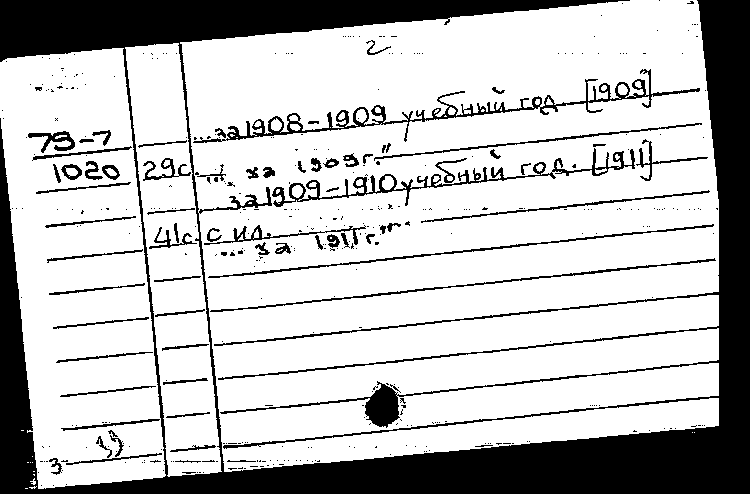 2
...за 1908-1909 учебный год [1909]
79-7
1020 29с. ... за 1909г."
за 1909-1910 учебный год. [1911]
41с. с ил.
... за 1911г."
3